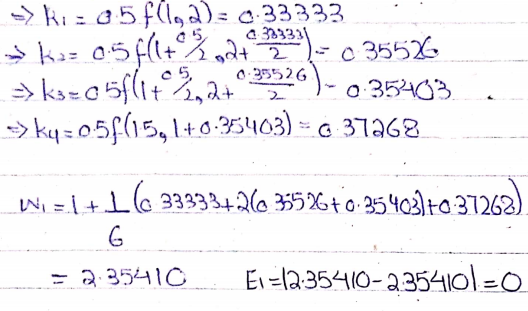 ⇒ k₁ = 0.5 f(1, 2) = 0.33333
⇒ k₂ = 0.5 f(1 + 0.5/2, 2 + 0.33333/2) = 0.35526
⇒ k₃ = 0.5 f(1 + 0.5/2, 2 + 0.35526/2) = 0.35403
⇒ k₄ = 0.5 f(1.5, 1 + 0.35403) = 0.37268
W₁ = 1 + 1/6 (0.33333 + 2(0.35526 + 0.35403) + 0.37268)
= 2.35410 E₁ = |2.35410 - 2.35410| = 0